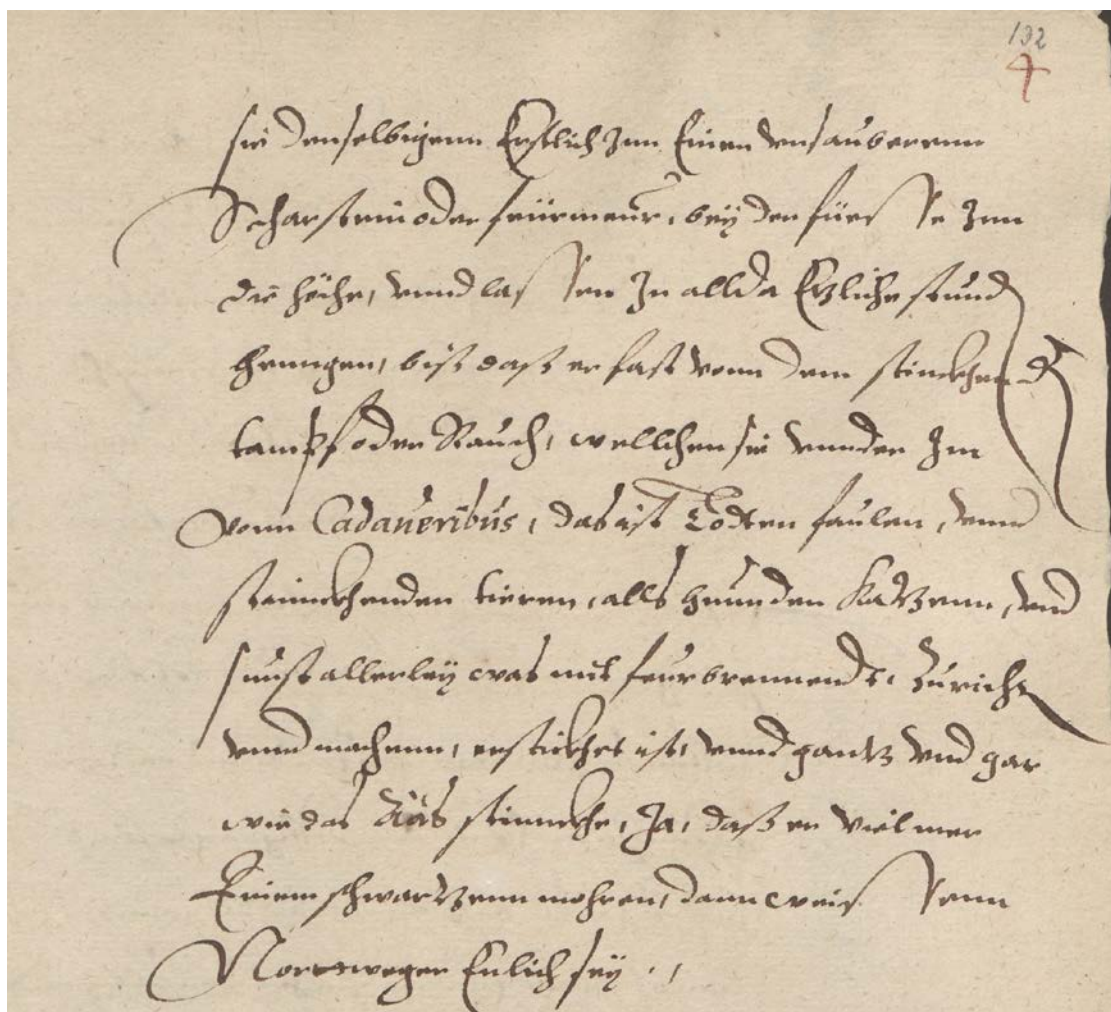 132
4
sie denselbigenn Erstlich Inn Einen vnsauberenn
Scharstein oder feürmeür, beÿ den füessse Inn
die höche, vnnd lasssen In allda Etzliche stund
henngen, biß daß er fast vonn dem stinckhend
tampff oder Rauch, wellchen sie vnnder Im
vonn Cadaueribus, das ist Todten faulen, vnnd
stinnckhenden tieren, alls hunnden Katzenn, vnd
sunst allerleÿ was mit feur brennendt, Zuricht
vnnd machenn, ersticket ist, vnnd gantz vnd gar
wie das Aäs stinnckhe, Ja, daß er viel mer
Einem schwartzenn mohren, dann weisssenn
Norrweger Enlich seÿ.,